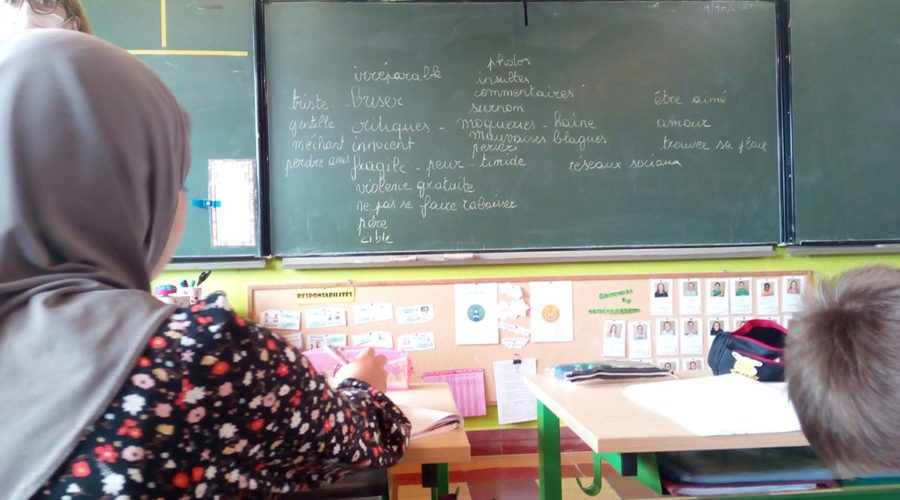 photos
irréparable
insultes
commentaires
triste - briser
surnom
être aimé
gentille critiques - moqueries - haine
amour
méchant innocent
mauvaises blagues
trouver sa place
perdre amis fragile - peur - timide
réseaux sociaux
violence gratuite
ne pas se faire rabaisser
père
cible
RESPONSABILITÉS